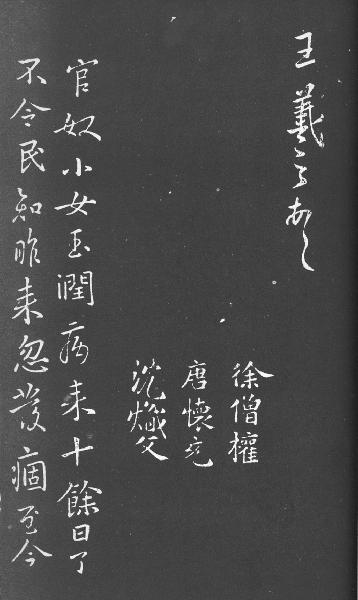 王羲之
徐僧權
唐懷充
沈熾文
官奴小女玉潤病来十餘日了
不令民知昨来忽發痼至今